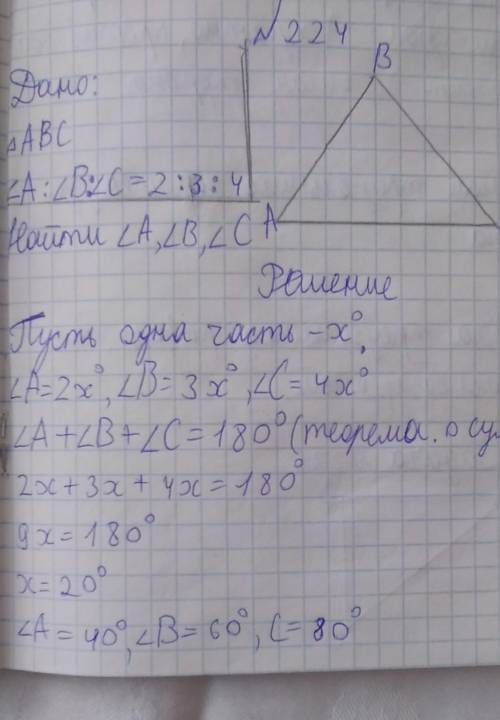 №224
Дано:
B
△ABC
∠A:∠B:∠C=2:3:4
A
Найти ∠A,∠B,∠C
Решение
Пусть одна часть - x°,
∠A=2x°, ∠B=3x°, ∠C=4x°
∠A+∠B+∠C=180° (теорема о
2x+3x+4x=180°
9x=180°
x=20°
∠A=40°, ∠B=60°, C=80°